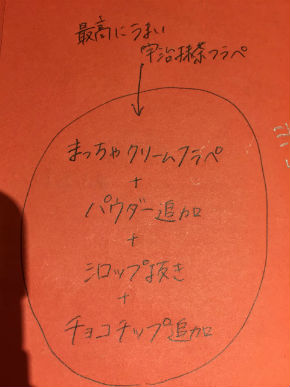 最高にうまい
宇治抹茶フラペ
まっちゃクリームフラペ
+
パウダー追加
+
シロップ抜き
+
チョコチップ追加